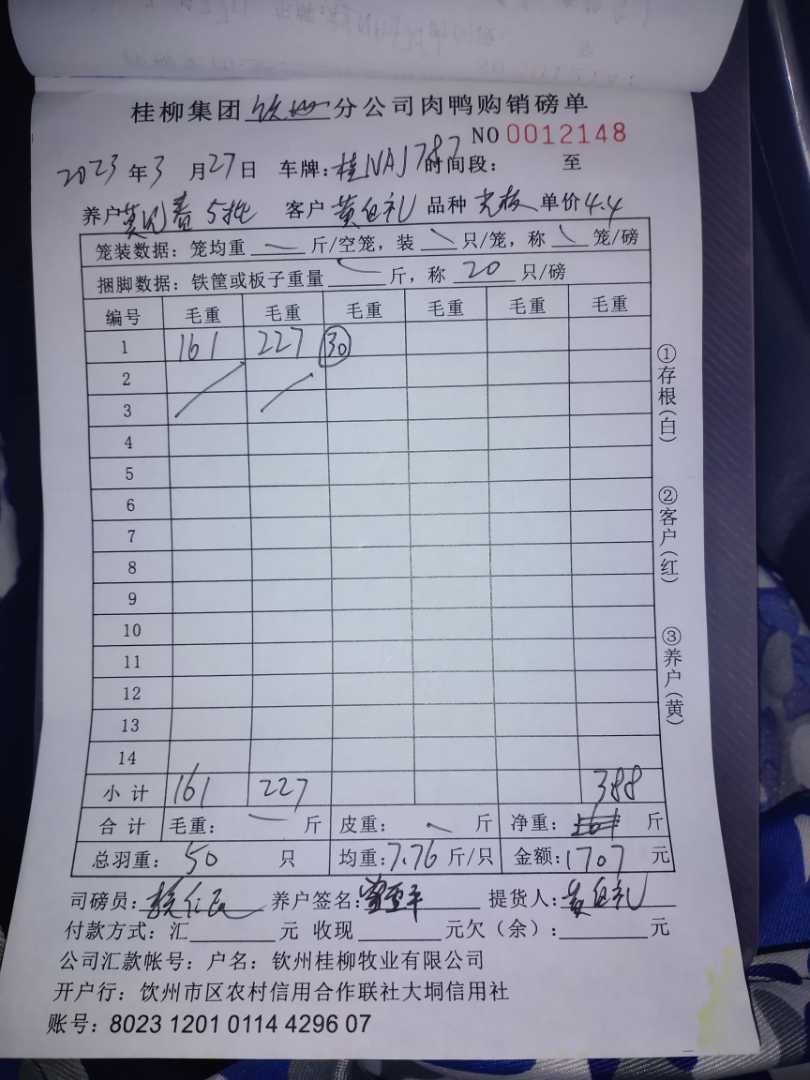 桂柳集团钦州分公司肉鸭购销磅单
NO 0012148
2023年3月27日 车牌:桂NAJ787 时间段: 至
养户 春 5批 客户 黄伯礼 品种 光板 单价4.4
笼装数据:笼均重 斤/空笼,装 只/笼,称 笼/磅
捆脚数据:铁筐或板子重量 斤,称 20 只/磅
编号 毛重 毛重 毛重 毛重 毛重 毛重
1 161 227 30
2
3
4
5
6
7
8
9
10
11
12
13
14
小计 161 227 388
合计 毛重: 斤 皮重: 斤 净重: 斤
总羽重: 50 只 均重:7.76 斤/只 金额:1707 元
司磅员: 养户签名: 提货人:黄伯礼
付款方式:汇 元 收现 元欠(余): 元
公司汇款帐号:户名:钦州桂柳牧业有限公司
开户行:钦州市区农村信用合作联社大垌信用社
账号:8023 1201 0114 4296 07
①存根(白)
②客户(红)
③养户(黄)